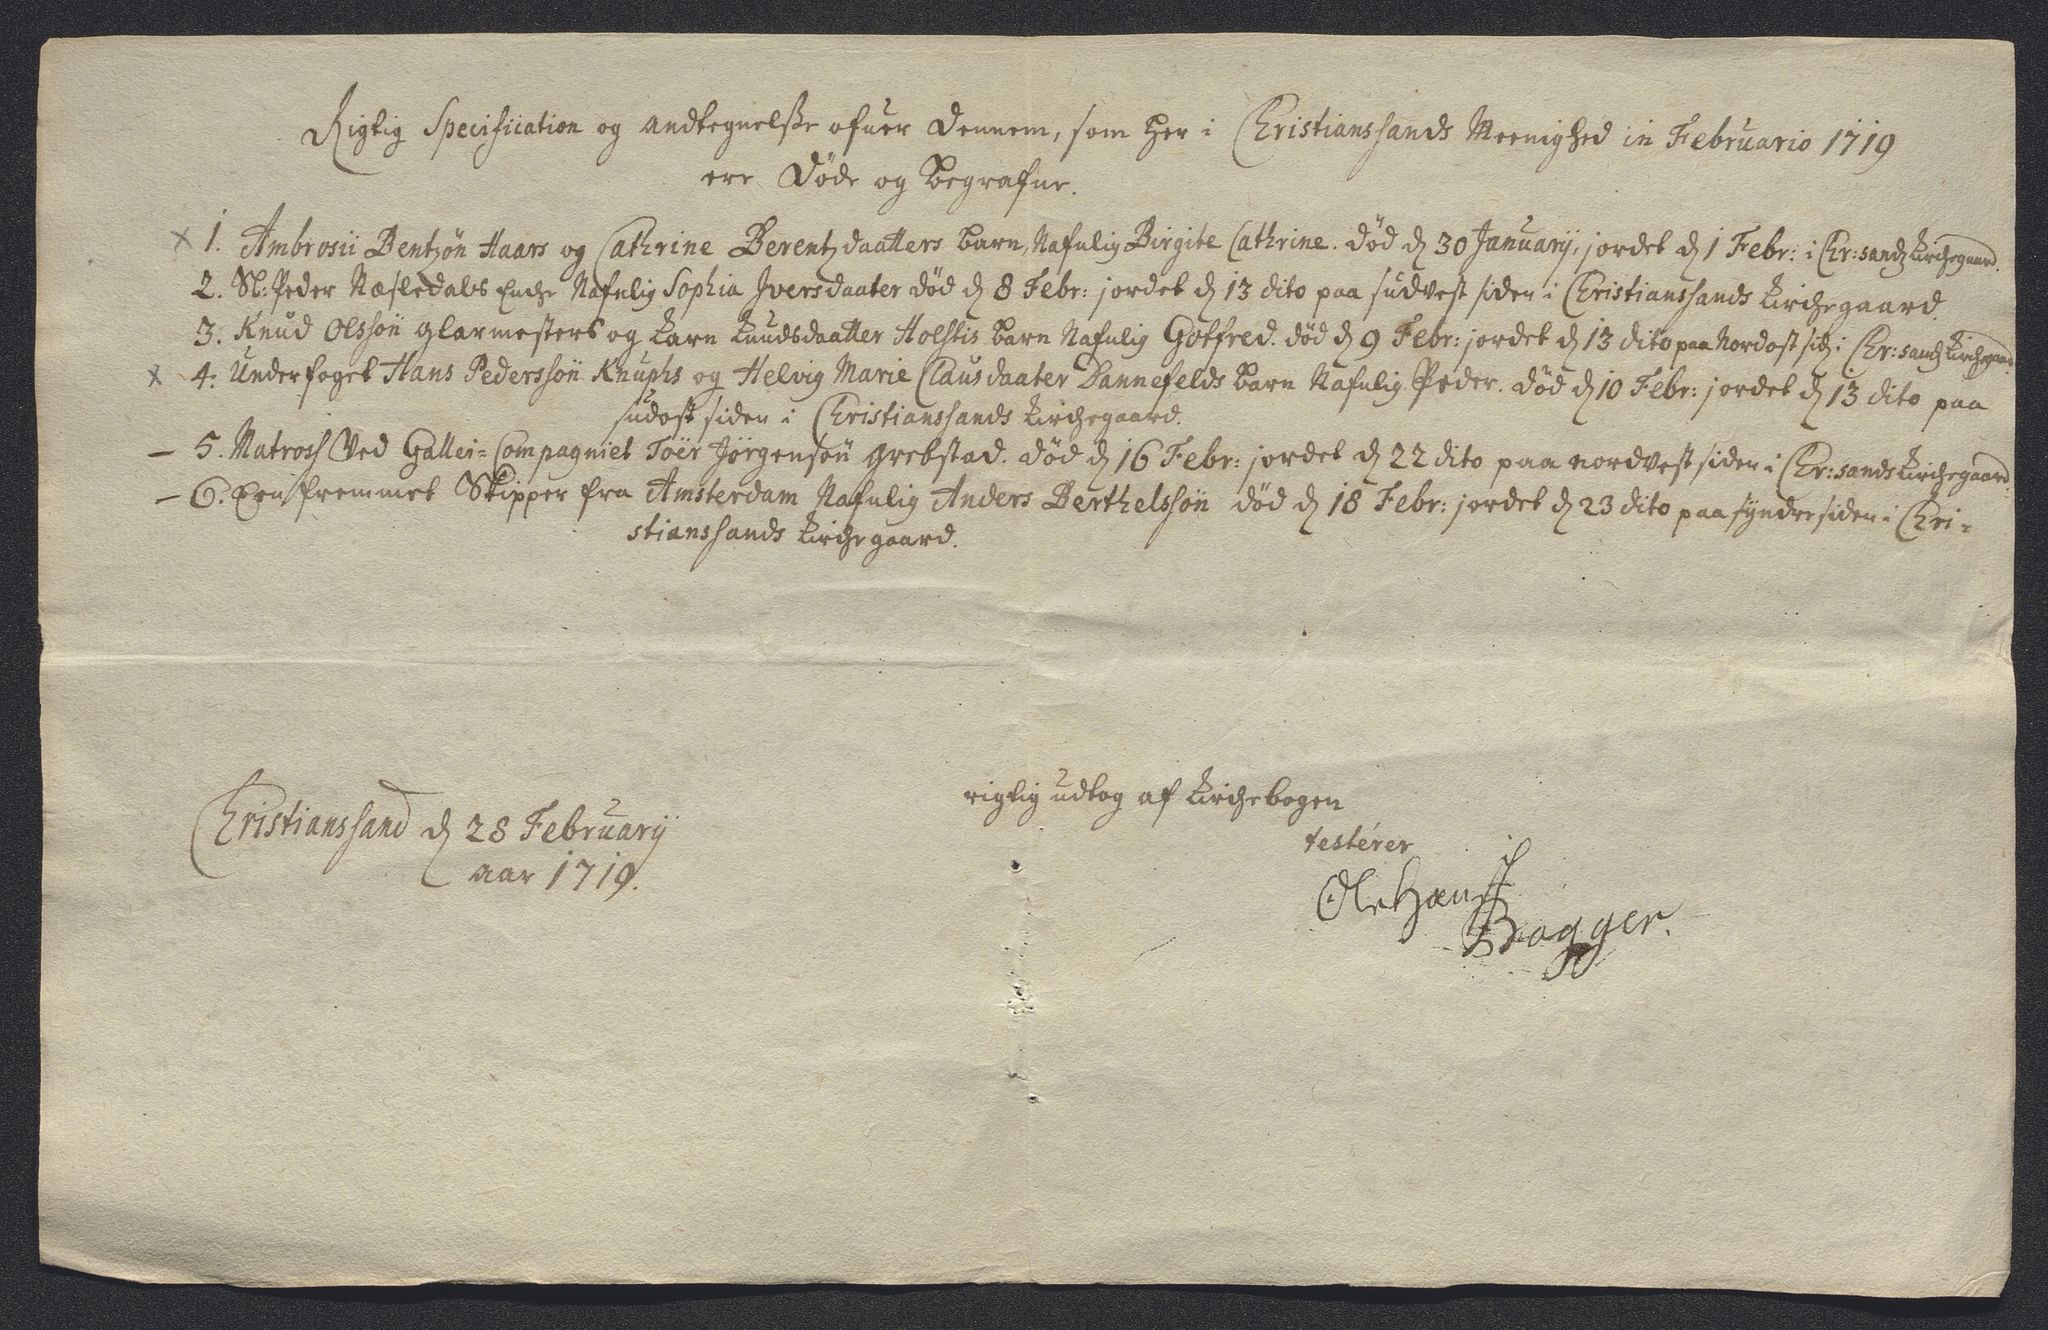 Rigtig Specification og andtegnelsse ofuer dennem, som her i Christianssands Meenighed in Februario 1719
ere Døde og begrafne.
x 1. Ambrosii Bentzøn Haars og Cathrine Berentzdaatters barn, Nafnlig Birgite Cathrine. død d 30 Januarÿ, jordet d 1 Febr: i Chr:sandz Kirchegaard.
2. Sl: Peder Næsledals Enche Nafnlig Sophia Iversdaater død d 8 Febr: jordet d 13 dito paa sudvest siden i Christianssands Kirchegaard.
3. Knud Olssøn glarmesters og Karn Knudsdaatter Holstis barn Nafnlig Gotfred. død d 9 Febr: jordet d 13 dito paa Nordost sid i Chr:sandz Kirchgaard.
x 4. Underfoget Hans Pederssøn Knuphs og Helvig Marie Clausdaater Dannefelds barn Nafnlig Peder. død d 10 Febr: jordet d 13 dito paa
sudost siden i Christianssands Kirchegaard.
— 5. Matross Ved Gallei=Compagniet Toer Jörgensøn Grebstad. død d 16 Febr: jordet d 22 dito paa nordvest siden i Chr:sands Kirchegaard.
— 6. Een fremmet Skipper fra Amsterdam Nafnlig Anders Berthelssøn død d 18 Febr: jordet d 23 dito paa syndre siden i Chri=
stianssands Kirchegaard.
rigtig udtog af Kirchebogen
Christianssand d 28 Februarÿ
testérer
aar 1719.
Ole Hans
Bagger.